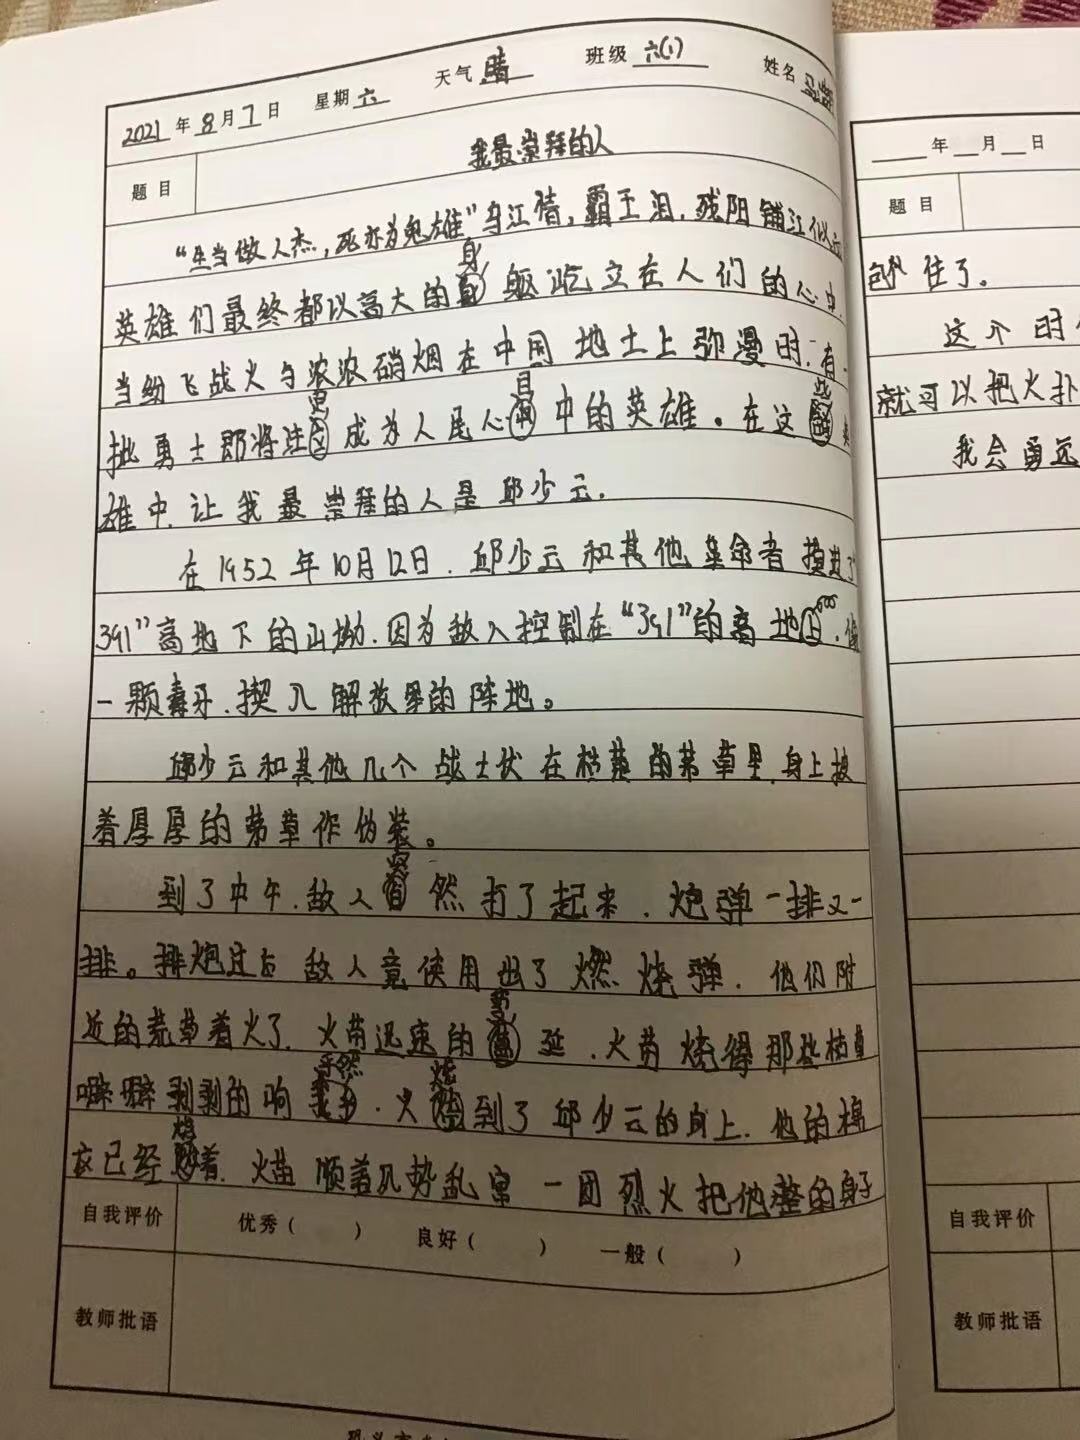 2021年8月7日 星期六 天气晴 班级六(1) 姓名
题目 我最崇拜的人
“生当做人杰，死亦为鬼雄”乌江情，霸王泪，残阳铺江似
英雄们最终都以高大的身躯屹立在人们的心中
当纷飞战火与浓浓硝烟在中国地土上弥漫时，有
批勇士即将注定成为人民心目中的英雄。在这些
雄中，让我最崇拜的人是邱少云.
在1952年10月12日，邱少云和其他革命者摸进了
391”高地下的山坳.因为敌人控制在“391”的高地
一颗毒牙.揳入解放军的阵地。
邱少云和其他几个战士伏在枯黄的茅草里，身上披
着厚厚的茅草作伪装。
到了中午，敌人突然打了起来，炮弹一排又一
排。排炮过后敌人竟使用出了燃烧弹，他们附
近的荒草着火了，火苗迅速的蔓延，火苗烧得那些枯草
噼噼剥剥的响，火烧到了邱少云的身上，他的棉
衣已经烧着，火苗顺着风势乱窜一团烈火把他整的身子
自我评价 优秀（ ） 良好（ ） 一般（ ）
教师批语
年 月 日
题目
包住了。
这个时
就可以把火扑
我会勇远
自我评价
教师批语